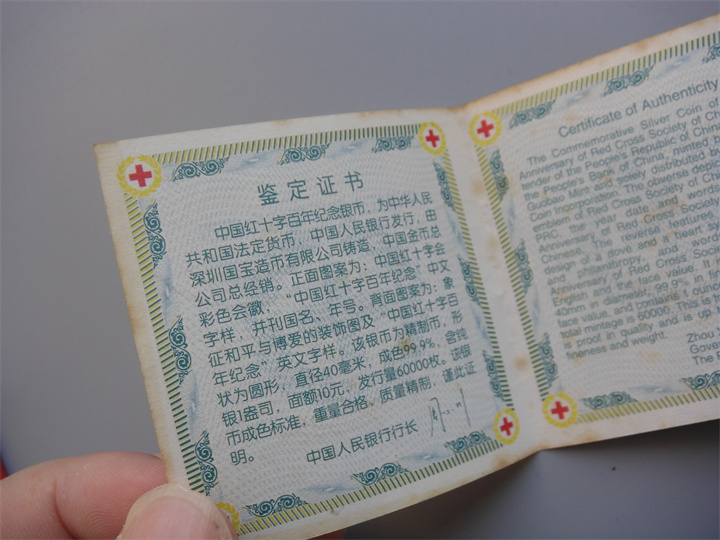 鉴定证书
中国红十字百年纪念银币，为中华人民
共和国法定货币，中国人民银行发行，由
深圳国宝造币有限公司铸造，中国金币总
公司总经销。正面图案为：中国红十字会
彩色会徽、“中国红十字百年纪念”中文
字样，并刊国名、年号。背面图案为：象
征和平与博爱的装饰图及“中国红十字百
年纪念”英文字样。该银币为精制币，形
状为圆形，直径40毫米，成色99.9%，含纯
银1盎司，面额10元，发行量60000枚。该银
币成色标准，重量合格，质量精制，谨此证
明。
中国人民银行行长
Certificate of Authenticity
The Commemorative Silver Coin of
Anniversary of Red Cross Society of
tender of the People's Republic of China,
the People's Bank of China, minted by
Guobao Mint and solely distributed by
Coin Incorporation. The obverse
emblem of Red Cross Society
PRC, the year date and
Anniversary of Red Cross Society
Chinese. The reverse features
design of a dove and a heart
and philanthropy, and
Anniversary of Red Cross
English and the face value.
40mm in diameter, 99.9% in
face value, and contains 1 ounce
total mintage is 60000. This
is proof in quality and is up
fineness and weight.
Zhou
The